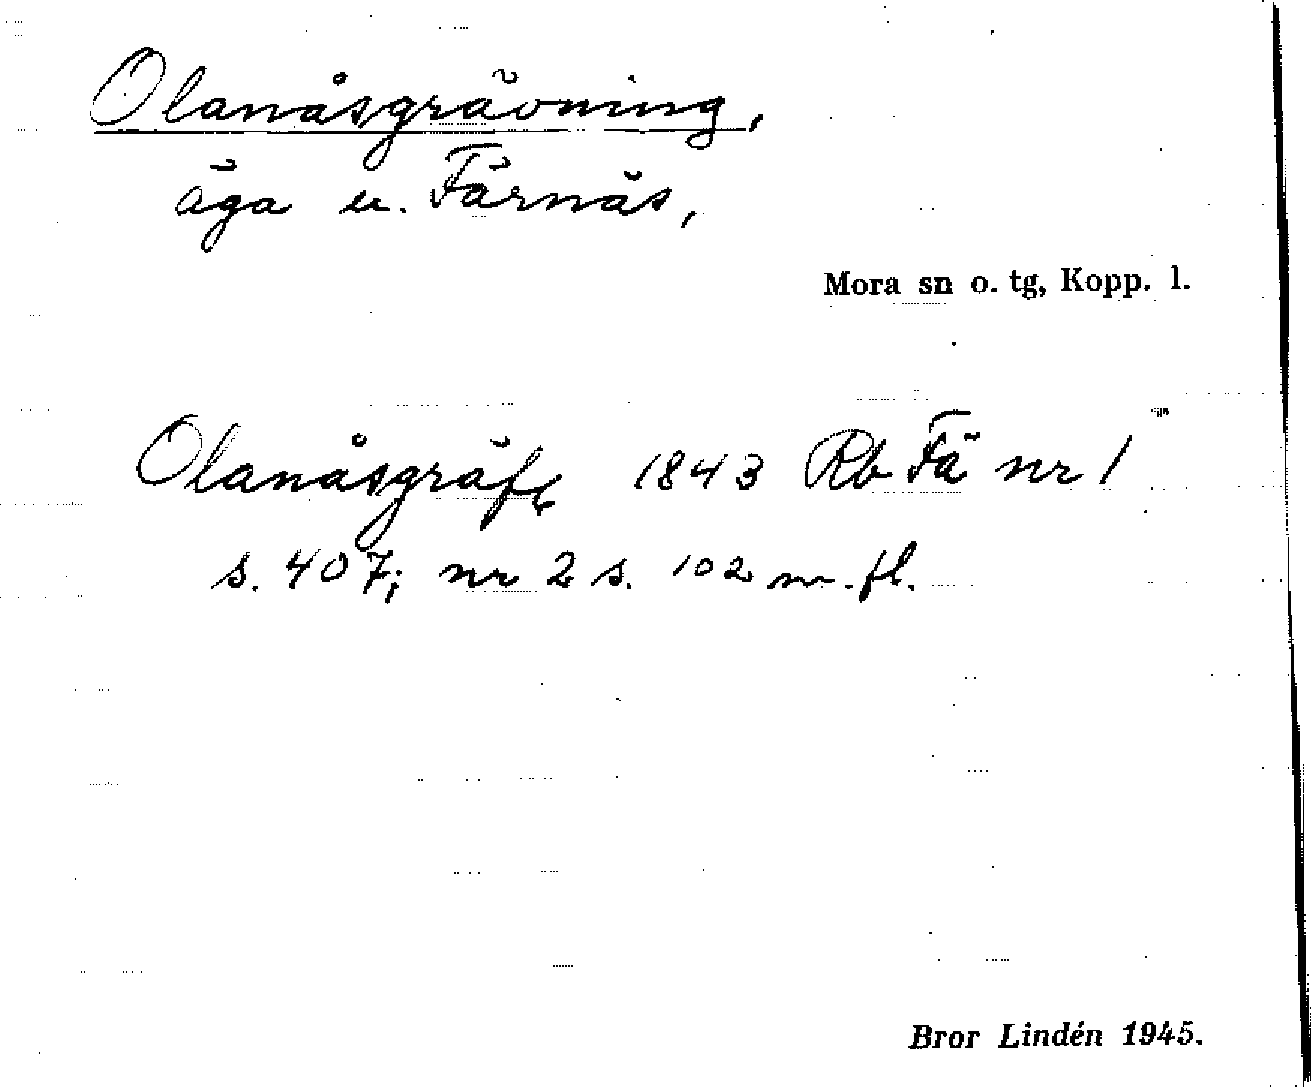 Olanåsgrävning,
äga u. Färnäs,
Mora sn o. tg, Kopp. l.
Olanåsgräfn 1843 Rb Fä nr 1
s. 407; nr 2 s. 102 m. fl.
Bror Lindén 1945.